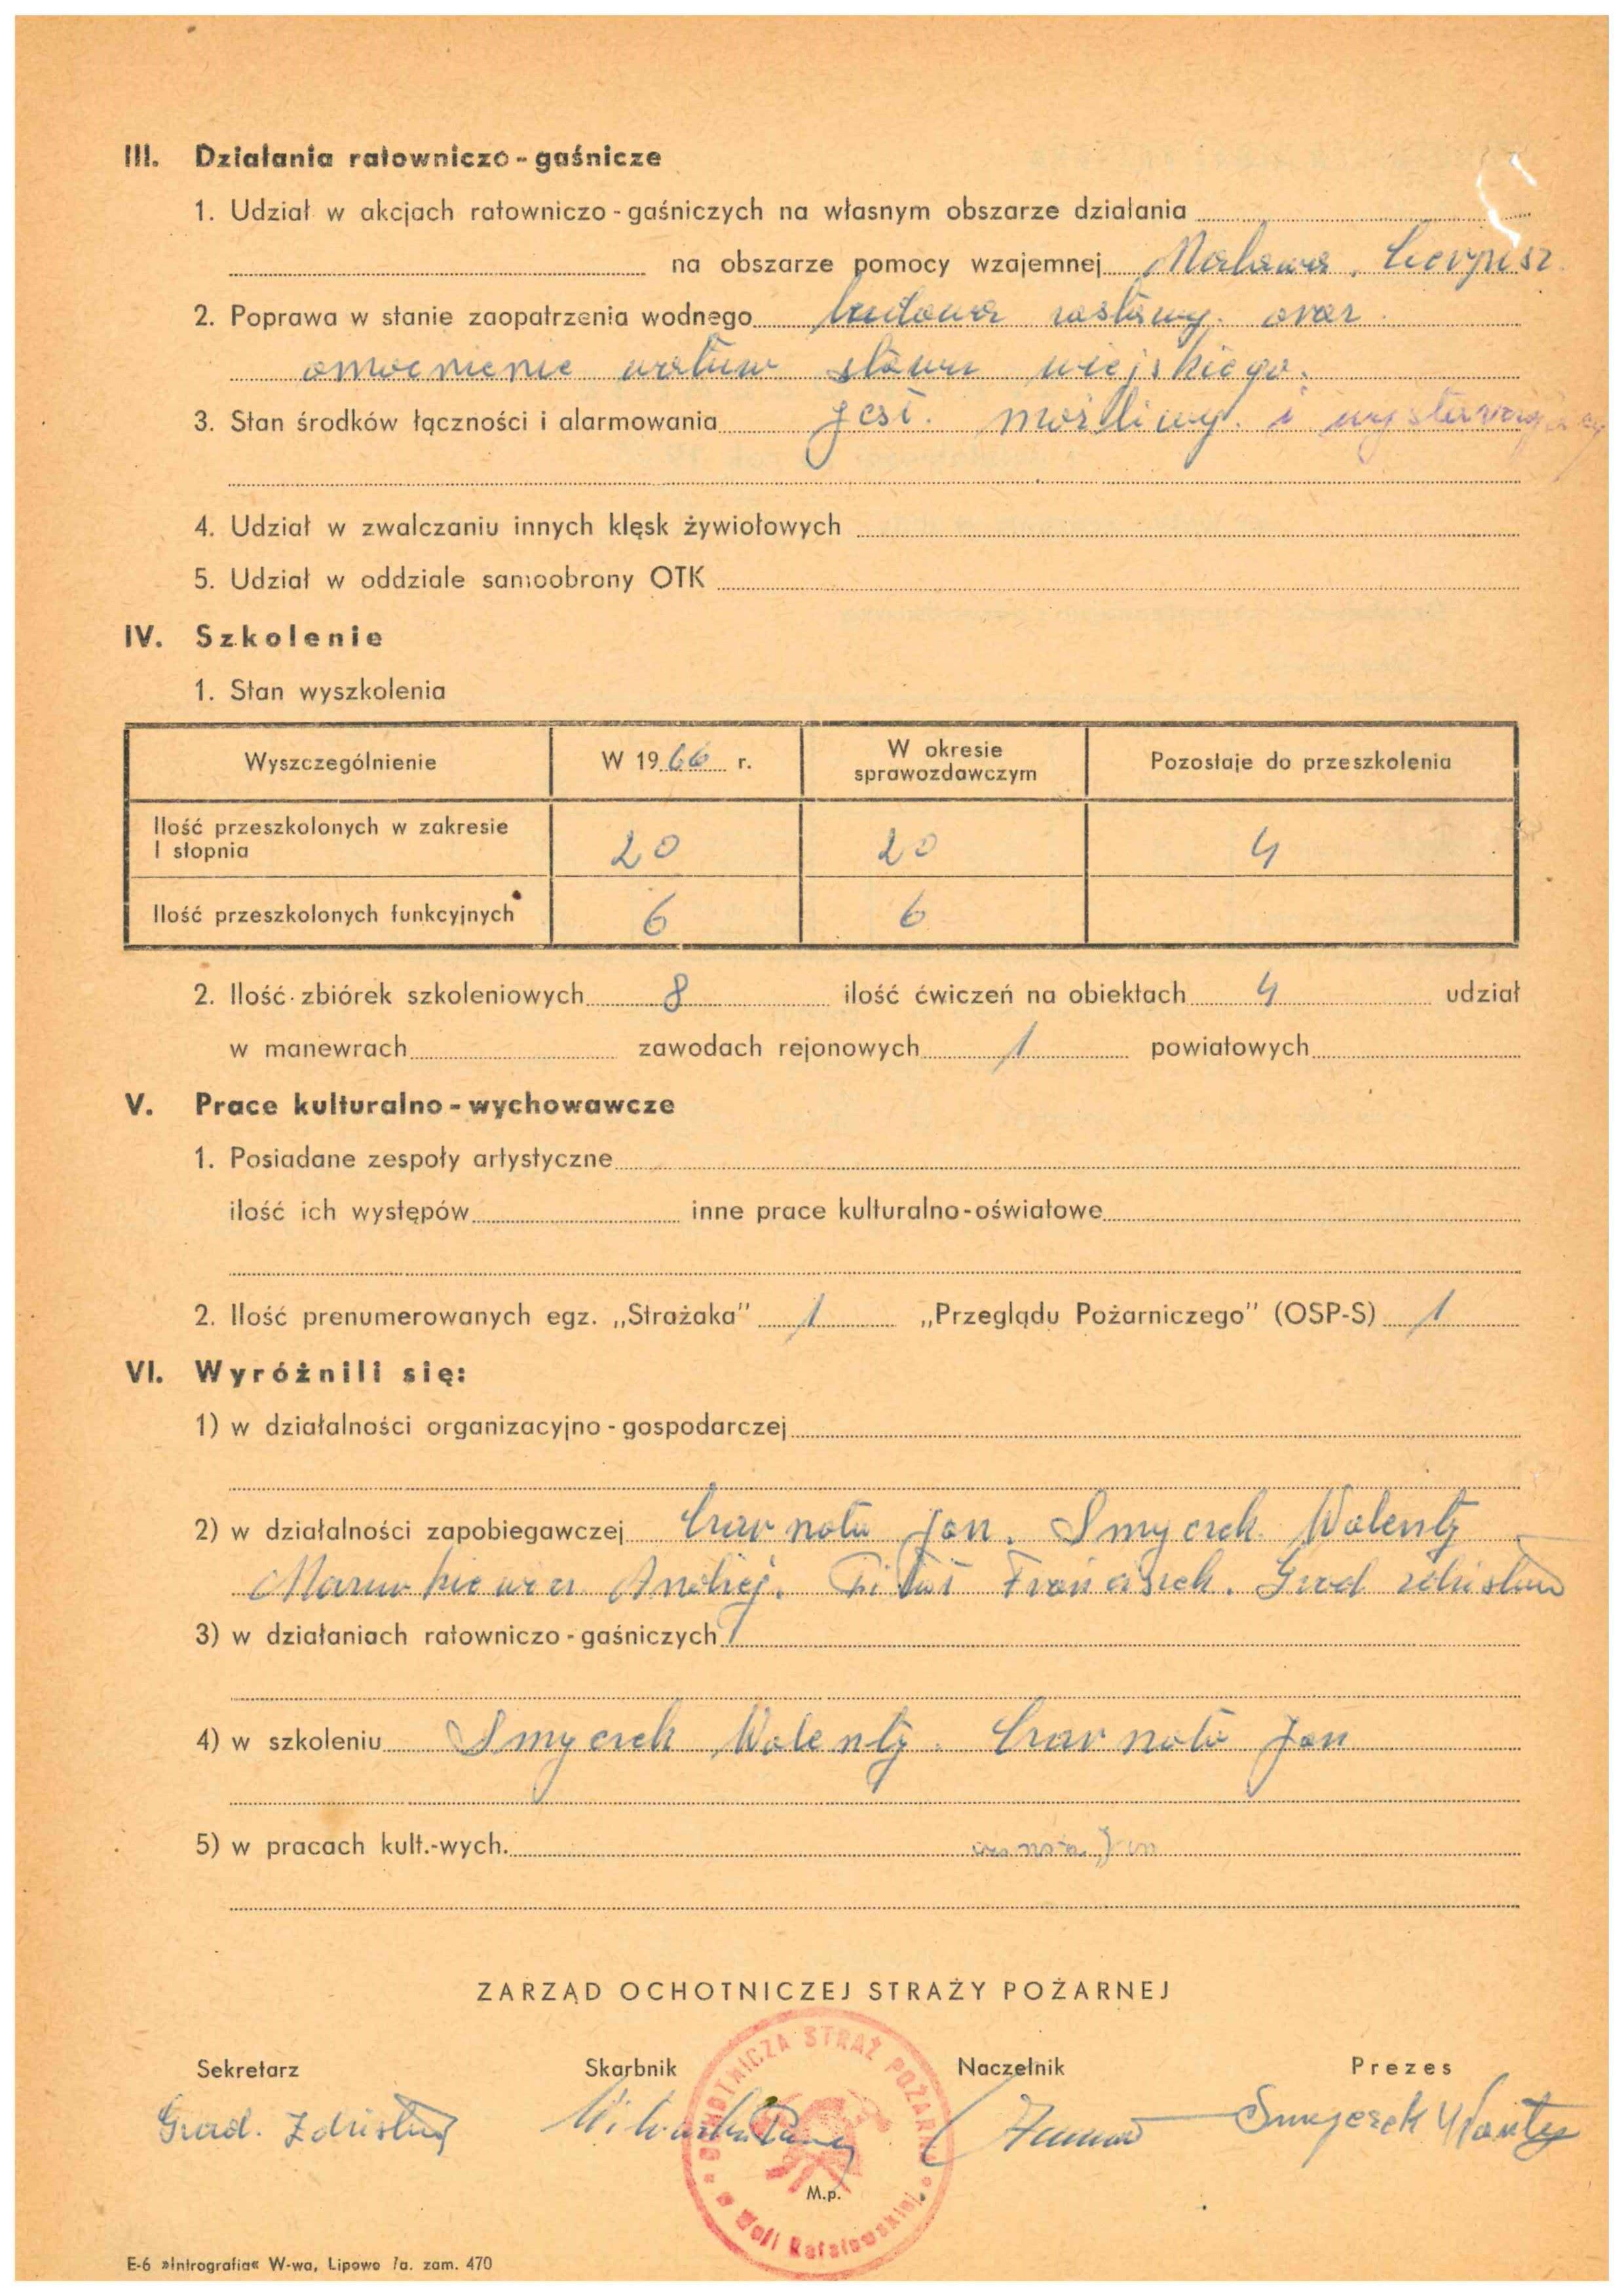 III. Działania ratowniczo-gaśnicze
1. Udział w akcjach ratowniczo-gaśniczych na własnym obszarze działania
na obszarze pomocy wzajemnej Malawa, Cierpisz
2. Poprawa w stanie zaopatrzenia wodnego budowa zastawy. oraz
omocnienie wałuw stawu wiejskiego.
3. Stan środków łączności i alarmowania jest. możlliwy. i wystarczający
4. Udział w zwalczaniu innych klęsk żywiołowych
5. Udział w oddziale samoobrony OTK
IV. Szkolenie
1. Stan wyszkolenia
Wyszczególnienie W 1966 r. W okresie sprawozdawczym Pozostaje do przeszkolenia
Ilość przeszkolonych w zakresie I stopnia 20 20 4
Ilość przeszkolonych funkcyjnych 6 6
2. Ilość zbiórek szkoleniowych 8 ilość ćwiczeń na obiektach 4 udział
w manewrach zawodach rejonowych 1 powiatowych
V. Prace kulturalno-wychowawcze
1. Posiadane zespoły artystyczne
ilość ich występów inne prace kulturalno-oświatowe
2. Ilość prenumerowanych egz. „Strażaka” 1 „Przeglądu Pożarniczego” (OSP-S) 1
VI. Wyróżnili się:
1) w działalności organizacyjno-gospodarczej
2) w działalności zapobiegawczej Czarnota Jan. Smyczek Walenty
Andrzej. Franciszek. Grad Zdzisław
3) w działaniach ratowniczo-gaśniczych
4) w szkoleniu Smyczek Walenty. Czarnota Jan
5) w pracach kult.-wych. Jan
ZARZĄD OCHOTNICZEJ STRAŻY POŻARNEJ
Sekretarz Skarbnik Naczelnik Prezes
Grad. Zdzisław Smyczek
OCHOTNICZA STRAŻ POŻARNA
M.p.
w Woli Rafałowskiej
E-6 »Intrografia« W-wa, Lipowa 7a. zam. 470